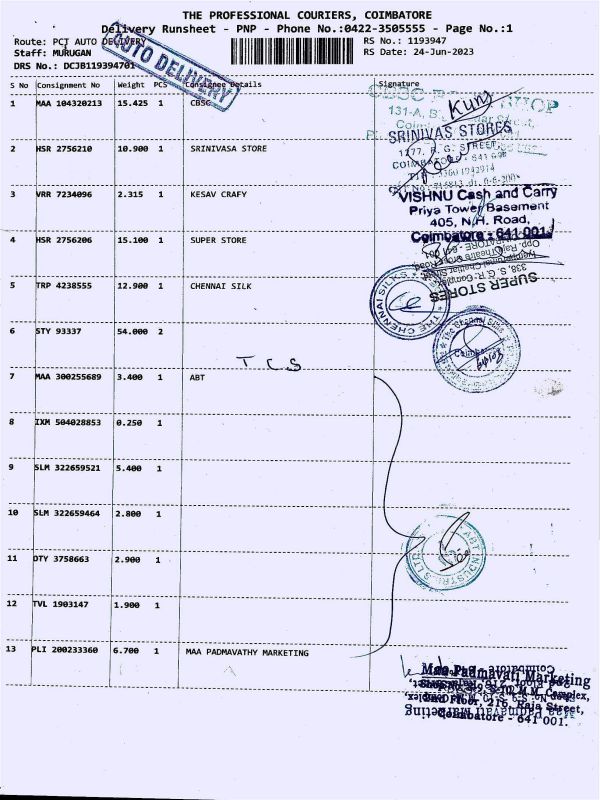 THE PROFESSIONAL COURIERS, COIMBATORE
Delivery Runsheet - PNP - Phone No.:0422-3505555 - Page No.:1
Route: PCT AUTO DELIVERY
RS No.: 1193947
Staff: MURUGAN
RS Date: 24-Jun-2023
DRS No.: DCJB119394701
AUTO DELIVERY
S No Consignment No Weight PCS Consignee Details Signature
1 MAA 104320213 15.425 1 CBSC
Kum
131-A,
2 HSR 2756210 10.900 1 SRINIVASA STORE
SRINIVAS STORES
1277, R. G. STREET,
3 VRR 7234096 2.315 1 KESAV CRAFY
VISHNU Cash and Carry
Priya Tower Basement
405, N.H. Road,
Coimbatore - 641 001
4 HSR 2756206 15.100 1 SUPER STORE
SUPER STORES
5 TRP 4238555 12.900 1 CHENNAI SILK
THE CHENNAI SILKS
6 STY 93337 54.000 2
T C S
The Chennai Silks
7 MAA 300255689 3.400 1 ABT
8 IXM 504028853 0.250 1
9 SLM 322659521 5.400 1
10 SLM 322659464 2.800 1
ABT INDUSTRIES LTD
11 DTY 3758663 2.900 1
12 TVL 1903147 1.900 1
13 PLI 200233360 6.700 1 MAA PADMAVATHY MARKETING
Maa Padmavati Marketing
M.M. Complex,
2nd Floor, 216, Raja Street,
Coimbatore - 641 001.